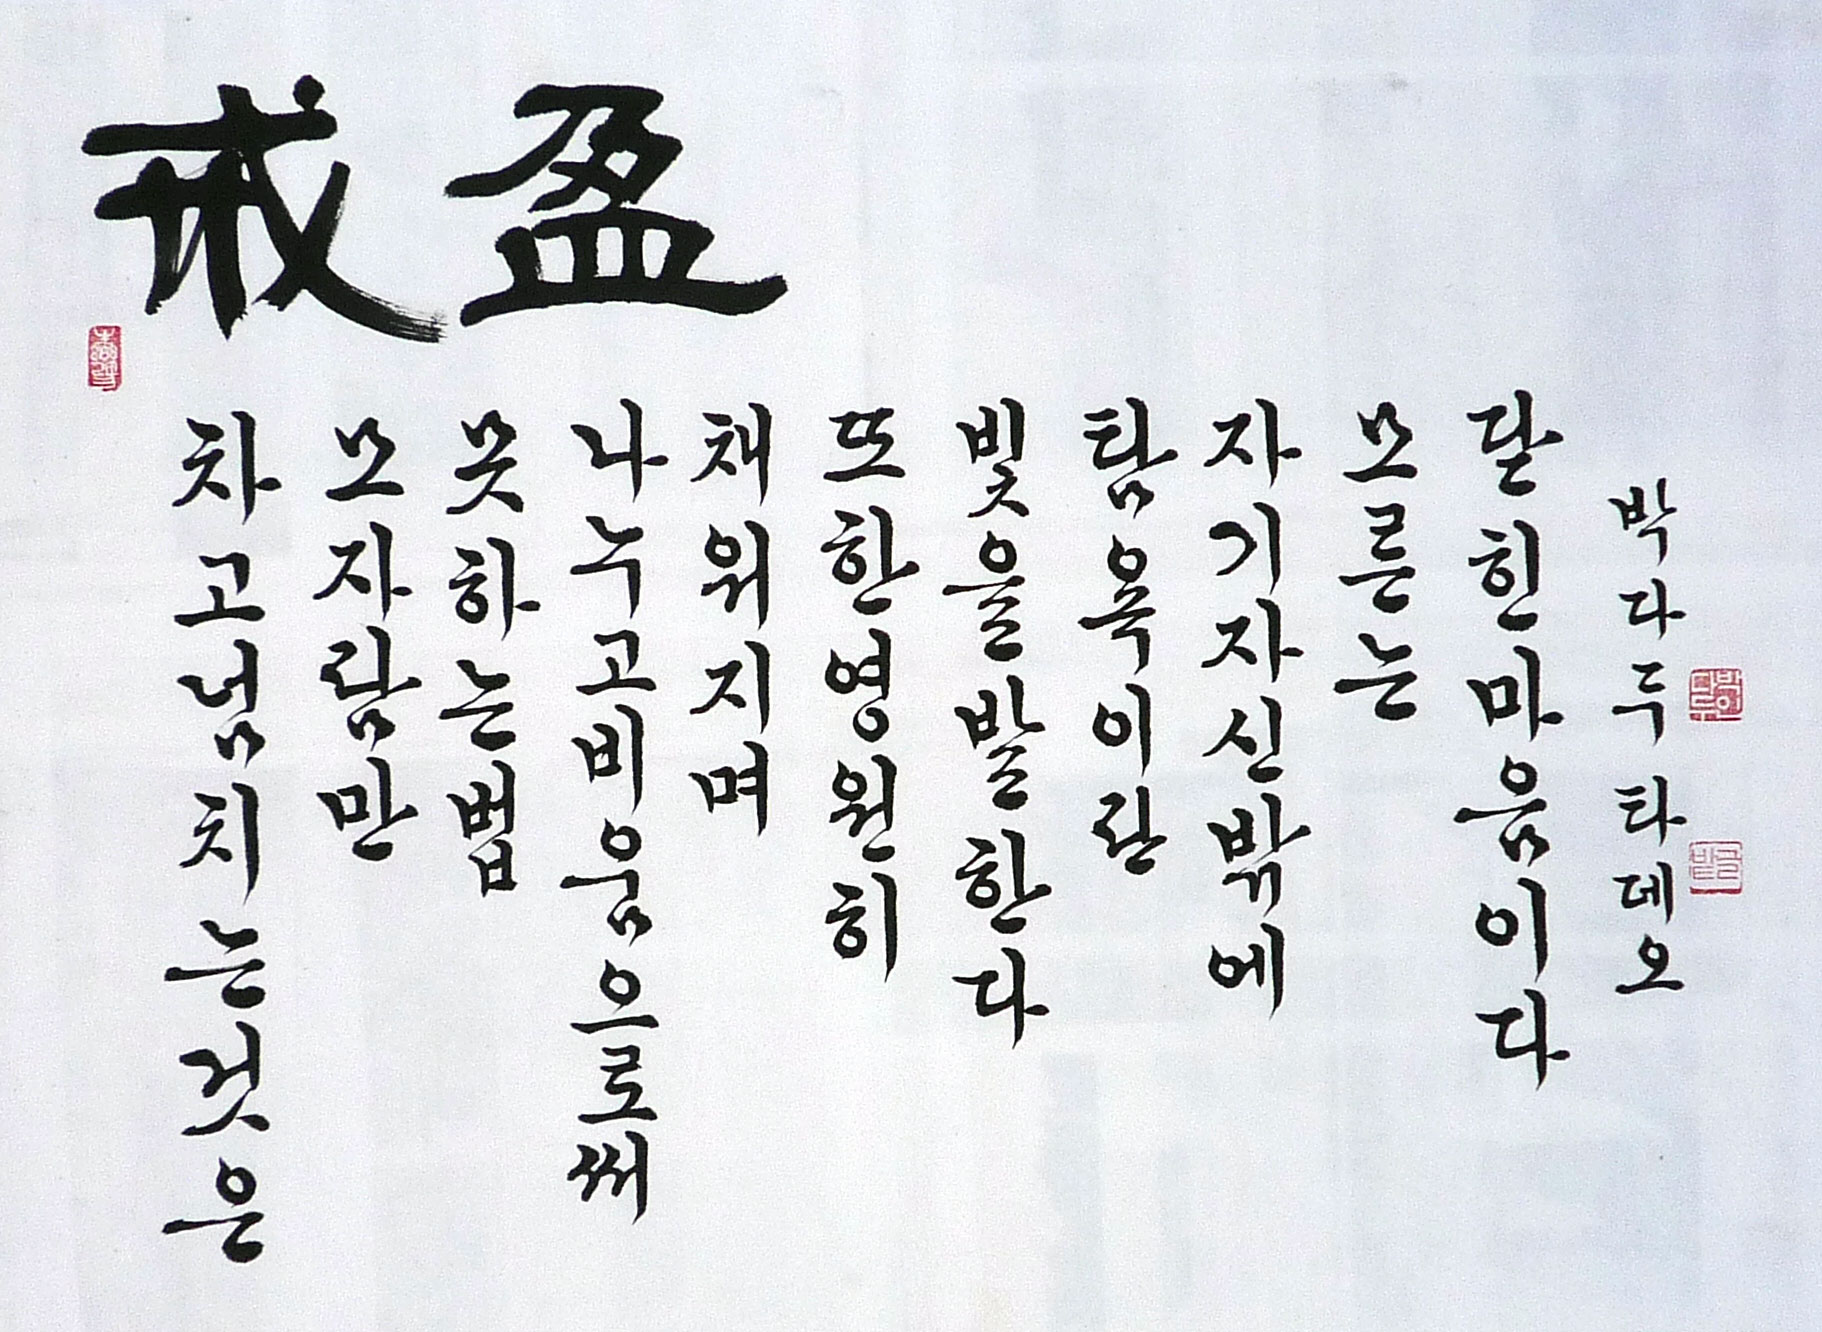 戒盈
차고넘치는것은
모자람만
못하는법
나누고비움으로써
채워지며
또한영원히
빛을발한다
탐욕이란
자기자신밖에
모르는
닫힌마음이다
박다두타데오